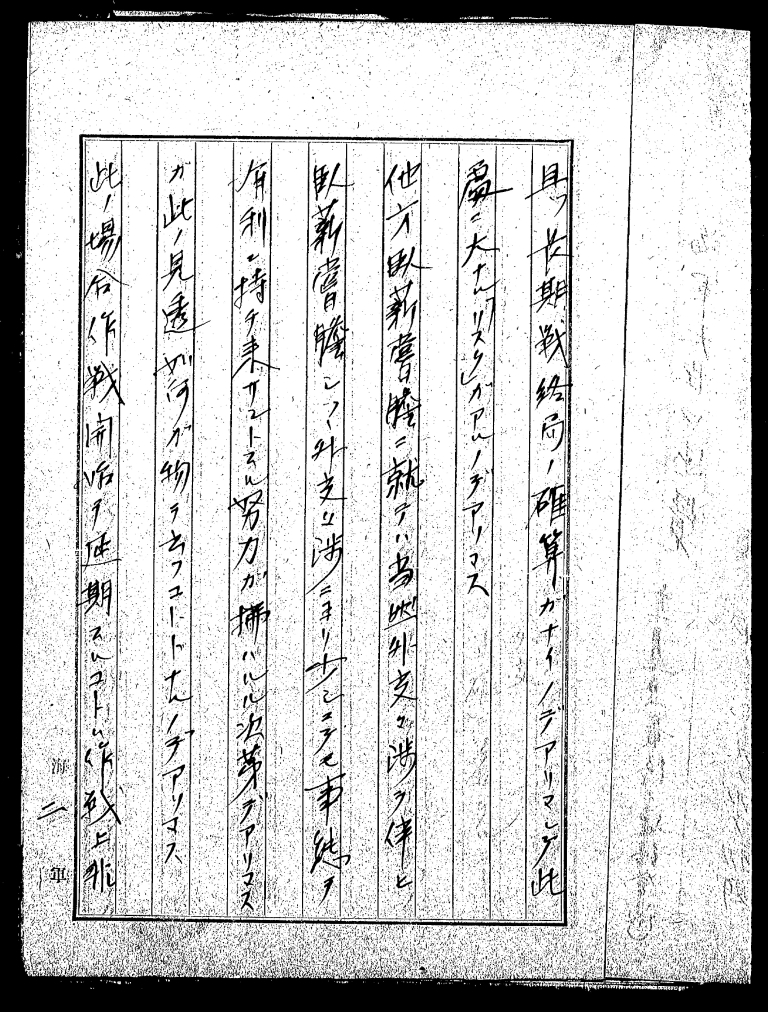 且ツ長期戦終局ノ確算ガナイノデアリマシテ此
處ニ大ナル「リスク」ガアルノデアリマス
他方臥薪嘗胆ニ就テハ当然外交々渉ヲ伴ヒ
臥薪嘗胆シツヽ外交々渉ニヨリ少シニテモ事態ヲ
有利ニ持チ来サントスル努力ガ拂ハルル次第デアリマス
ガ此ノ見透如何ガ物ヲ云フコトトナルノデアリマス
此ノ場合作戦開始ヲ延期スルコトハ作戦上非
海
二
軍